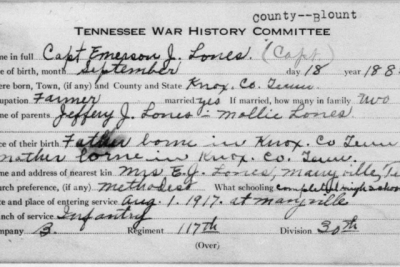 County--Blount
TENNESSEE WAR HISTORY COMMITTEE
me in full Capt Emerson J. Lones. (Capt)
e of birth, month September day 18 year 188
ere born, Town, (if any) and County and State Knox. Co. Tenn.
upation Farmer married yes If married, how many in family Two
me of parents Jeffery J. Lones - Mollie Lones
ce of their birth Father borne in Knox. Co Tenn
mother borne in Knox. Co. Tenn.
me and address of nearest kin Mrs. E. J. Lones, Maryville, Te
urch preference, (if any) methodist What schooling completed high school
te and place of entering service Aug. 1. 1917. at maryville
nch of service Infantry
mpany B. Regiment 117th Division 30th
(Over)